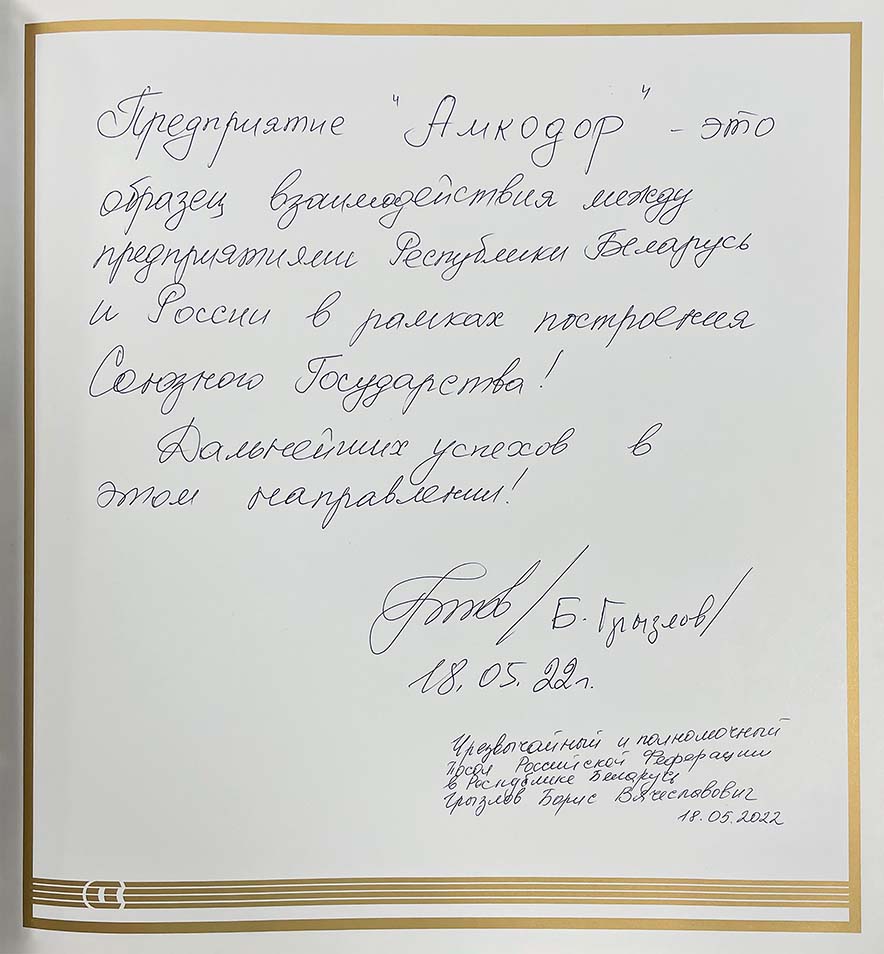 Предприятие "Амкодор" - это
образец взаимодействия между
предприятиями Республики Беларусь
и России в рамках построения
Союзного Государства!
Дальнейших успехов в
этом направлении!
/Б. Грызлов/
18.05.22г.
Чрезвычайный и полномочный
Посол Российской Федерации
в Республике Беларусь
Грызлов Борис Вячеславович
18.05.2022